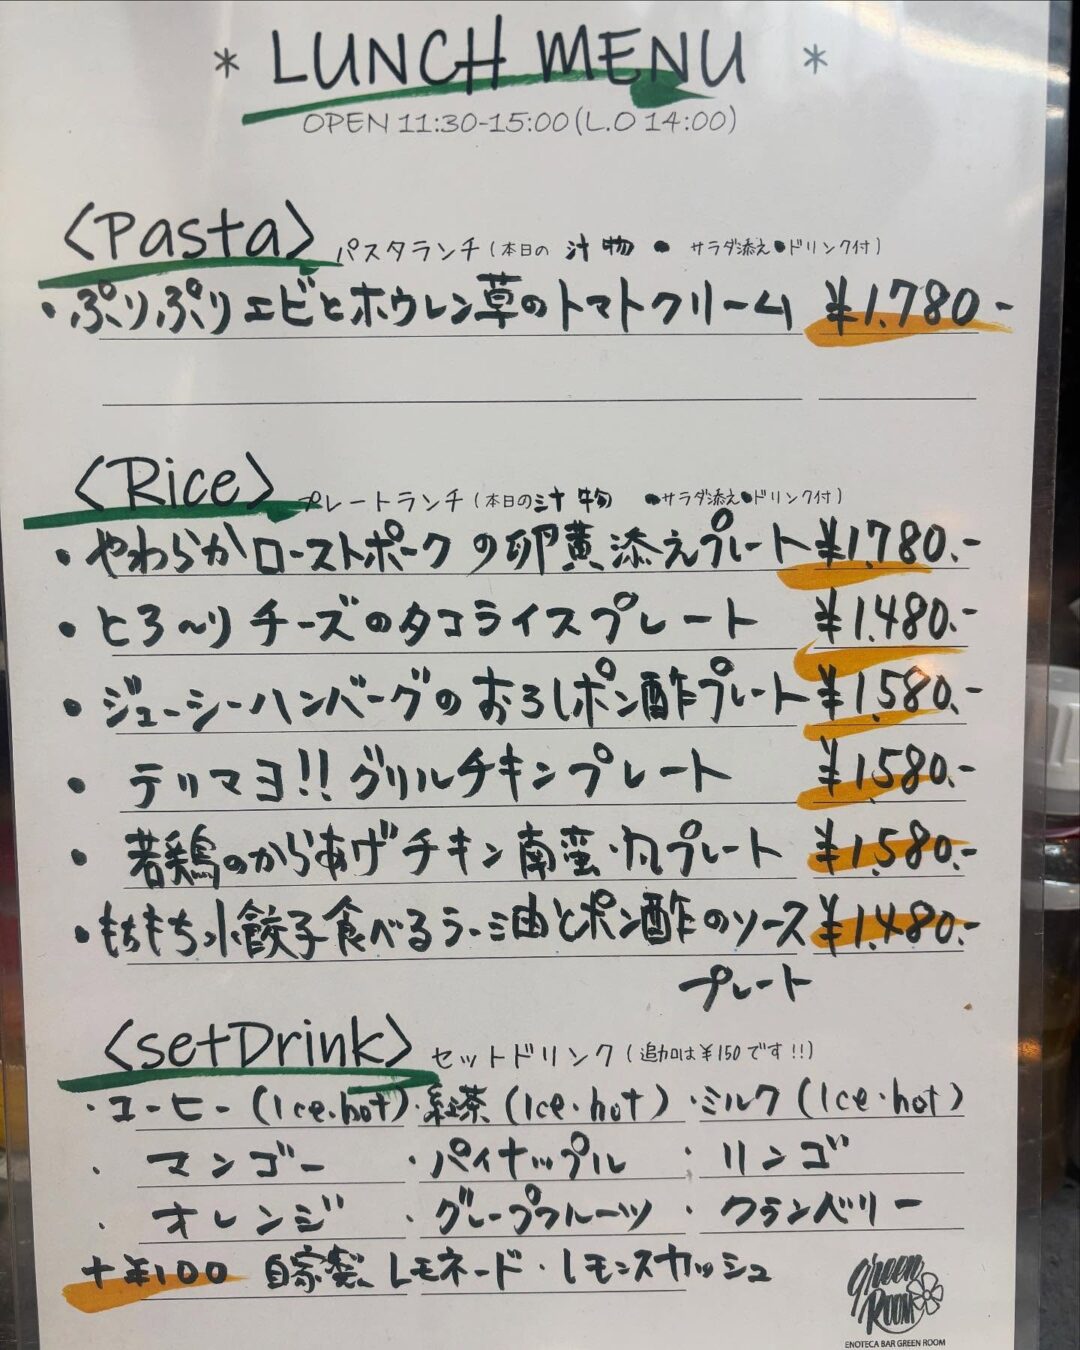 * LUNCH MENU *
OPEN 11:30-15:00(L.O 14:00)
<Pasta> パスタランチ(本日の 汁物 ● サラダ添え●ドリンク付)
・ぷりぷりエビとホウレン草のトマトクリーム ¥1,780-
<Rice> プレートランチ(本日の汁物 ●サラダ添え●ドリンク付)
・やわらかローストポークの卵黄添えプレート ¥1,780.-
・とろ〜りチーズのタコライスプレート ¥1,480.-
・ジューシーハンバーグのおろしポン酢プレート ¥1,580.-
・テリマヨ!!グリルチキンプレート ¥1,580.-
・若鶏のからあげチキン南蛮・プレート ¥1,580.-
・もちもち小餃子食べるラー油とポン酢のソース ¥1,480.-
プレート
<setDrink> セットドリンク(追加は¥150です!!)
・コーヒー(Ice・hot)・紅茶(Ice・hot)・ミルク(Ice・hot)
・マンゴー ・パイナップル ・リンゴ
・オレンジ ・グレープフルーツ ・クランベリー
+¥100 自家製レモネード・レモンスカッシュ
green ROOM
ENOTECA BAR GREEN ROOM